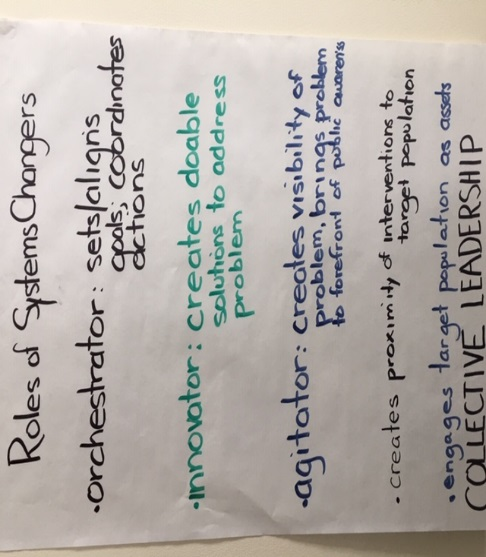 Roles of Systems Changers
•orchestrator: sets/aligns
goals; coordinates
actions
•innovator: creates doable
solutions to address
problem
•agitator: creates visibility of
problem, brings problem
to forefront of public awareness
• creates proximity of interventions to
target population
•engages target population as assets
COLLECTIVE LEADERSHIP